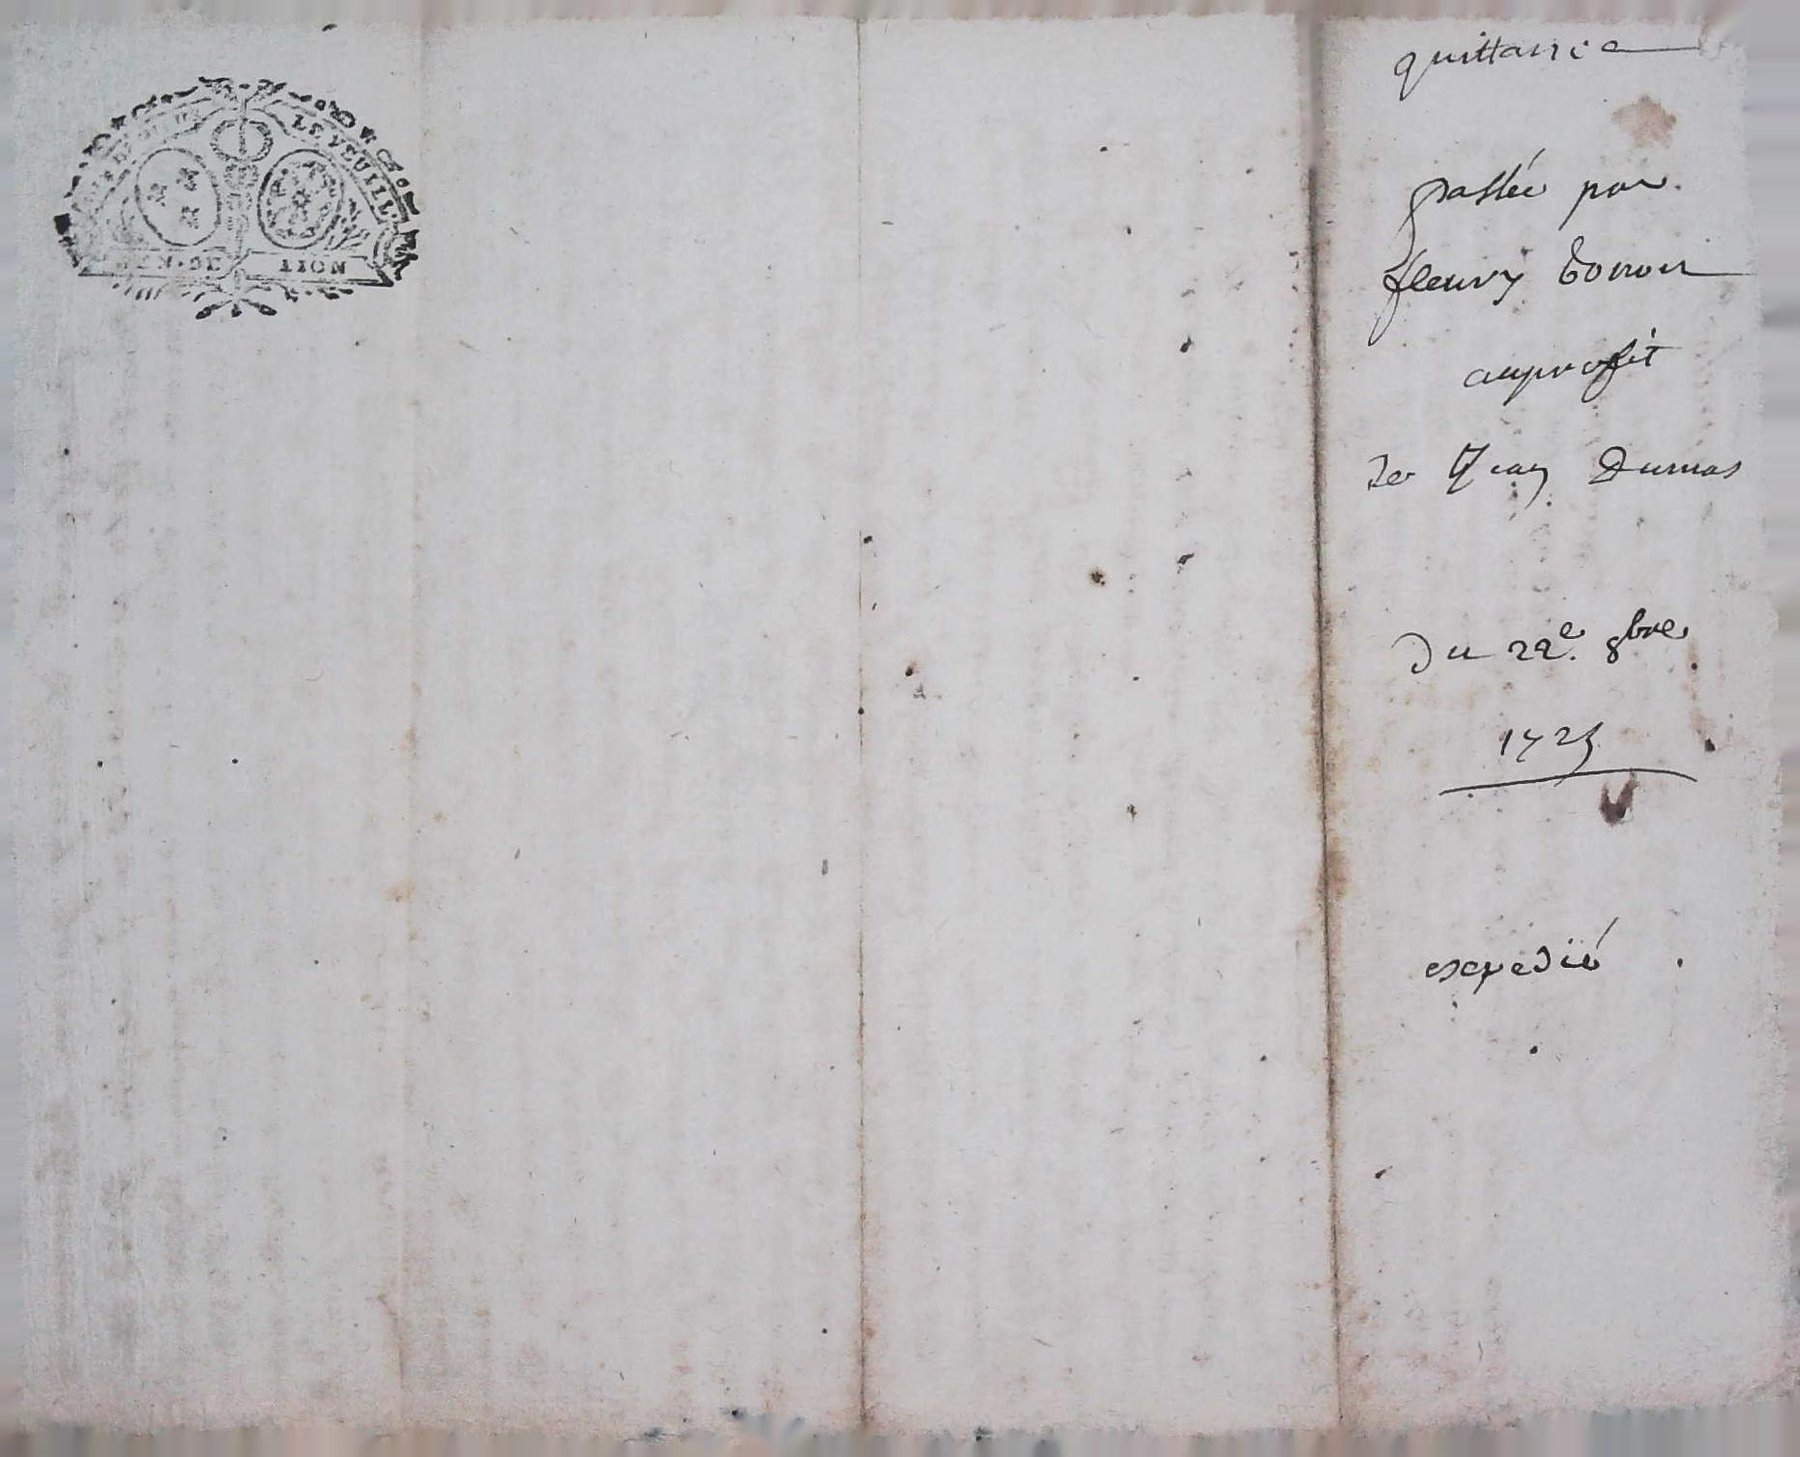 LE FEUIL
GEN·DE LION
quittance
passée par
fleury
auprofit
de Jean Dumas
Du 22e. 8bre
1725
expedié